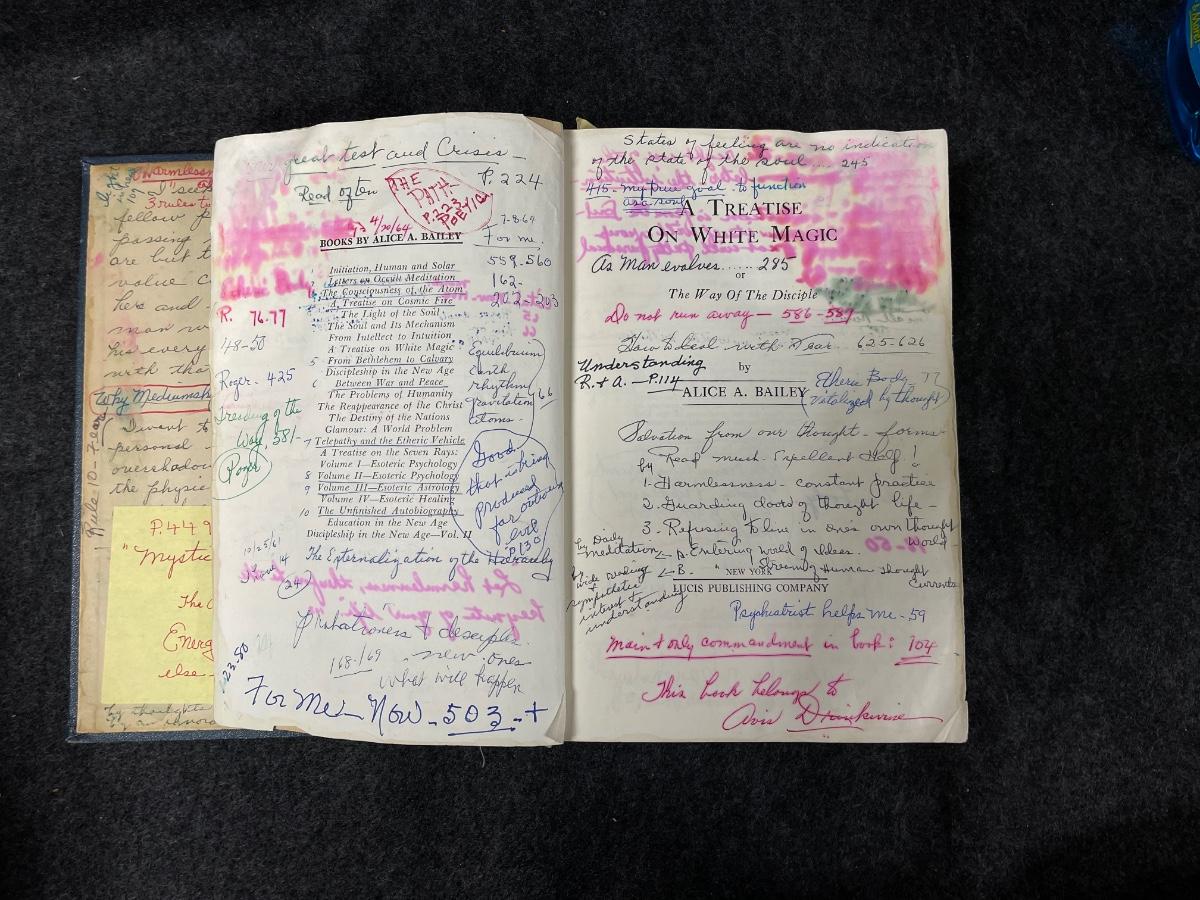 Harmlessness
I seek
3 rules to
fellow
passing
are but
value
hers and
man
his every
with tha
Why Mediumsh
I want to
personal
overshadow
the physic
Rule 10 - Fear
P. 449
"Mystic
The
Energ
else -
great test and Crisis -
Read often
THE
PATH -
P. 223
POETICAL
P. 224
4/20/64
BOOKS BY ALICE A. BAILEY
7-8-69
For me.
559-560
162-
202-203
Initiation, Human and Solar
Letters on Occult Meditation
The Consciousness of the Atom
A Treatise on Cosmic Fire
The Light of the Soul
The Soul and Its Mechanism
From Intellect to Intuition
A Treatise on White Magic
5 From Bethlehem to Calvary
Discipleship in the New Age
6 Between War and Peace
The Problems of Humanity
The Reappearance of the Christ
The Destiny of the Nations
Glamour: A World Problem
7 Telepathy and the Etheric Vehicle
A Treatise on the Seven Rays:
Volume I—Esoteric Psychology
8 Volume II—Esoteric Psychology
9 Volume III—Esoteric Astrology
Volume IV—Esoteric Healing
10 The Unfinished Autobiography
Education in the New Age
Discipleship in the New Age—Vol. II
The Externalization of the Hierarchy
R. 76-77
48-50
Roger - 425
Treading of the
Way, 581-
Roger
Equilibrium
earth
rhythm
gravitation
atoms.
66
Good
that is being
produced
far outweighs
evil
P. 130
10/25/61
24
Probationers & disciples
168-169 new ones
what will happen
23-50
For Me - Now - 503 - +
States of feeling are no indication
of the state of the soul ... 245
415 - my true goal to function
as a soul
A TREATISE
ON WHITE MAGIC
As Man evolves ...... 285
or
The Way Of The Disciple
Do not run away — 586-587
How to deal with Fear 625-626
Understanding
R. & A. — P. 114
by
ALICE A. BAILEY
Etheric Body - 77
(vitalized by thought)
Salvation from our thought-forms
by Read much. Excellent Help!
1. Harmlessness - constant practice
2. Guarding doors of thought life -
3. Refusing to live in one's own thought
World
by Daily
meditation A. Entering world of Ideas.
B. " Stream of Human Thought
Currents
by wide reading
& sympathetic
interest &
understanding
NEW YORK
LUCIS PUBLISHING COMPANY
Psychiatrist helps me - 59
Main & only commandment in book: 104
This book belongs to
Avis Drinkwine